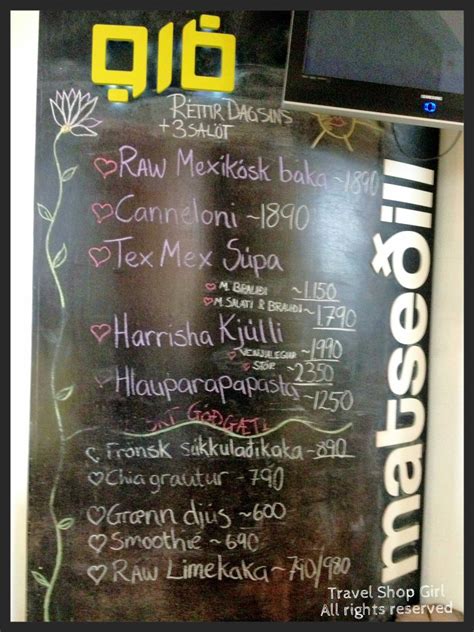 RÉTTIR DAGSINS
+ 3 SALÖT
RAW Mexíkósk baka ~1890
Canneloni ~1890
Tex Mex Súpa
M. BRAUÐI ~1150
M. SALATI & BRAUÐI ~1790
Harrisha Kjúlli
VENJULEGUR ~1990
STÓR ~2350
Hlauparapapasta ~1250
GÓÐGÆTI
Frönsk súkkulaðikaka ~890
Chia grautur - 790
Grænn djús ~600
Smoothie ~690
RAW Limekaka ~790/980
matseðill
Travel Shop Girl
All rights reserved